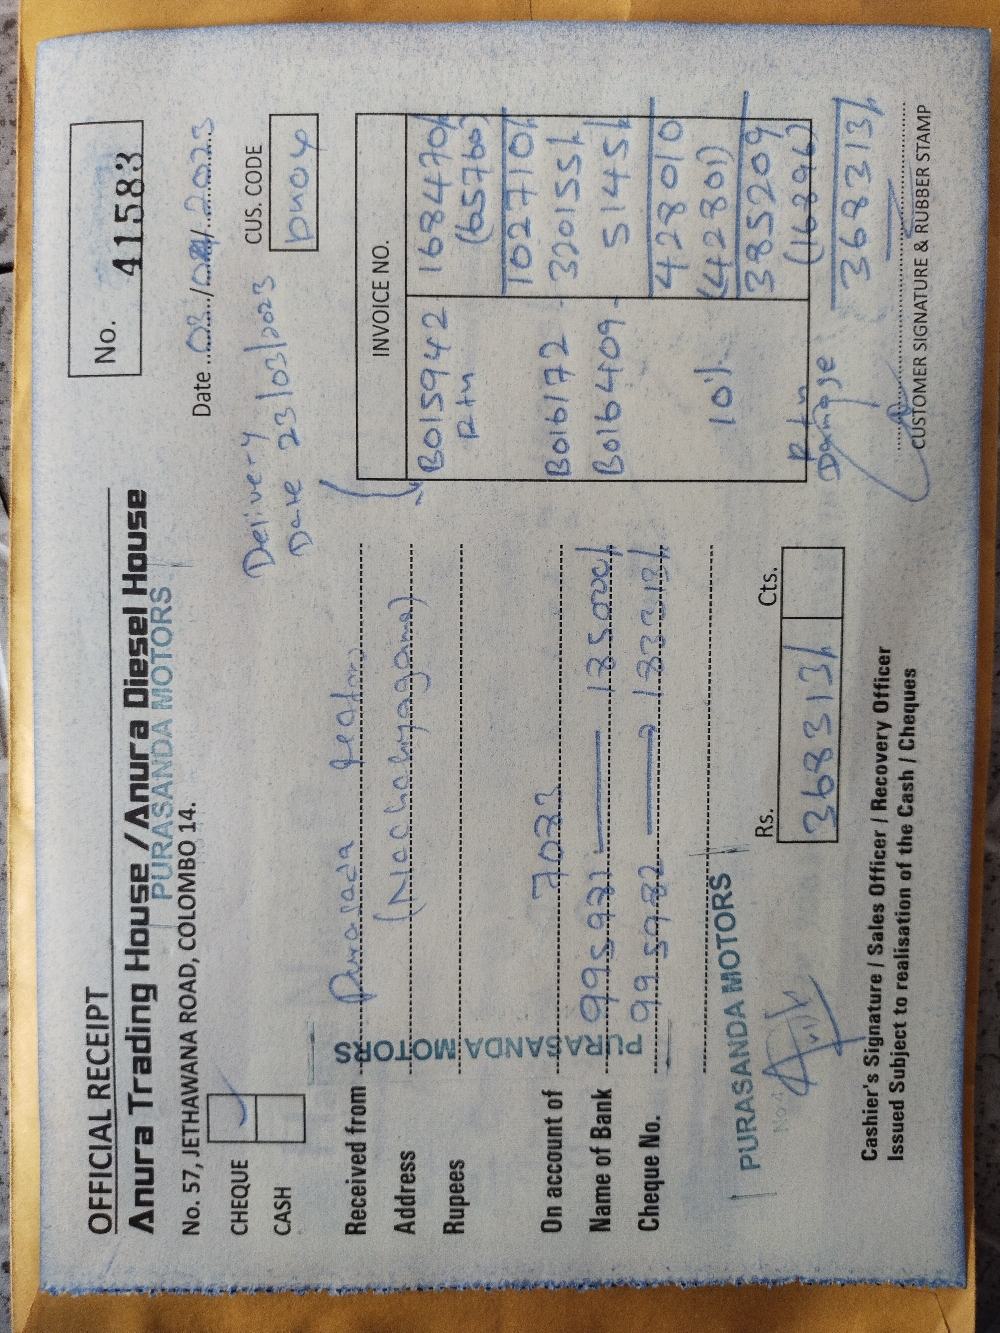 OFFICIAL RECEIPT
No. 41583
Anura Trading House / Anura Diesel House
PURASANDA MOTORS
No. 57, JETHAWANA ROAD, COLOMBO 14.
Date 08/ /2023
CHEQUE
CASH
Delivery
Date 23/03/2023
CUS. CODE
Received from
Address (Nochchiyagama)
Rupees
PURASANDA MOTORS
On account of 7083
Name of Bank 995981 185000/-
Cheque No. 995982 183313/-
INVOICE NO.
B015942 168470/-
Rtn (65760)
102710/-
B016172 - 320155/-
B016409 - 5145/-
428010
10% (42801)
385209
Rtn (16896)
Damage
368313/-
PURASANDA MOTORS
Rs. Cts.
368313/-
CUSTOMER SIGNATURE & RUBBER STAMP
Cashier's Signature / Sales Officer / Recovery Officer
Issued Subject to realisation of the Cash / Cheques